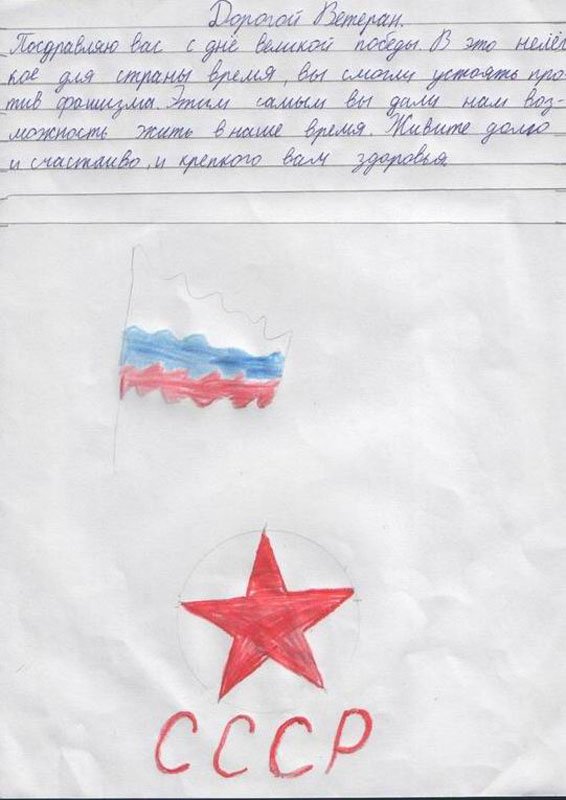 Дорогой Ветеран.
Поздравляю вас с дне великой победы. В это нелёг-
кое для страны время, вы смогли устоять про-
тив фашизма. Этим самым вы дали нам воз-
можность жить в наше время. Живите долго
и счастливо, и крепкого вам здоровья.
СССР